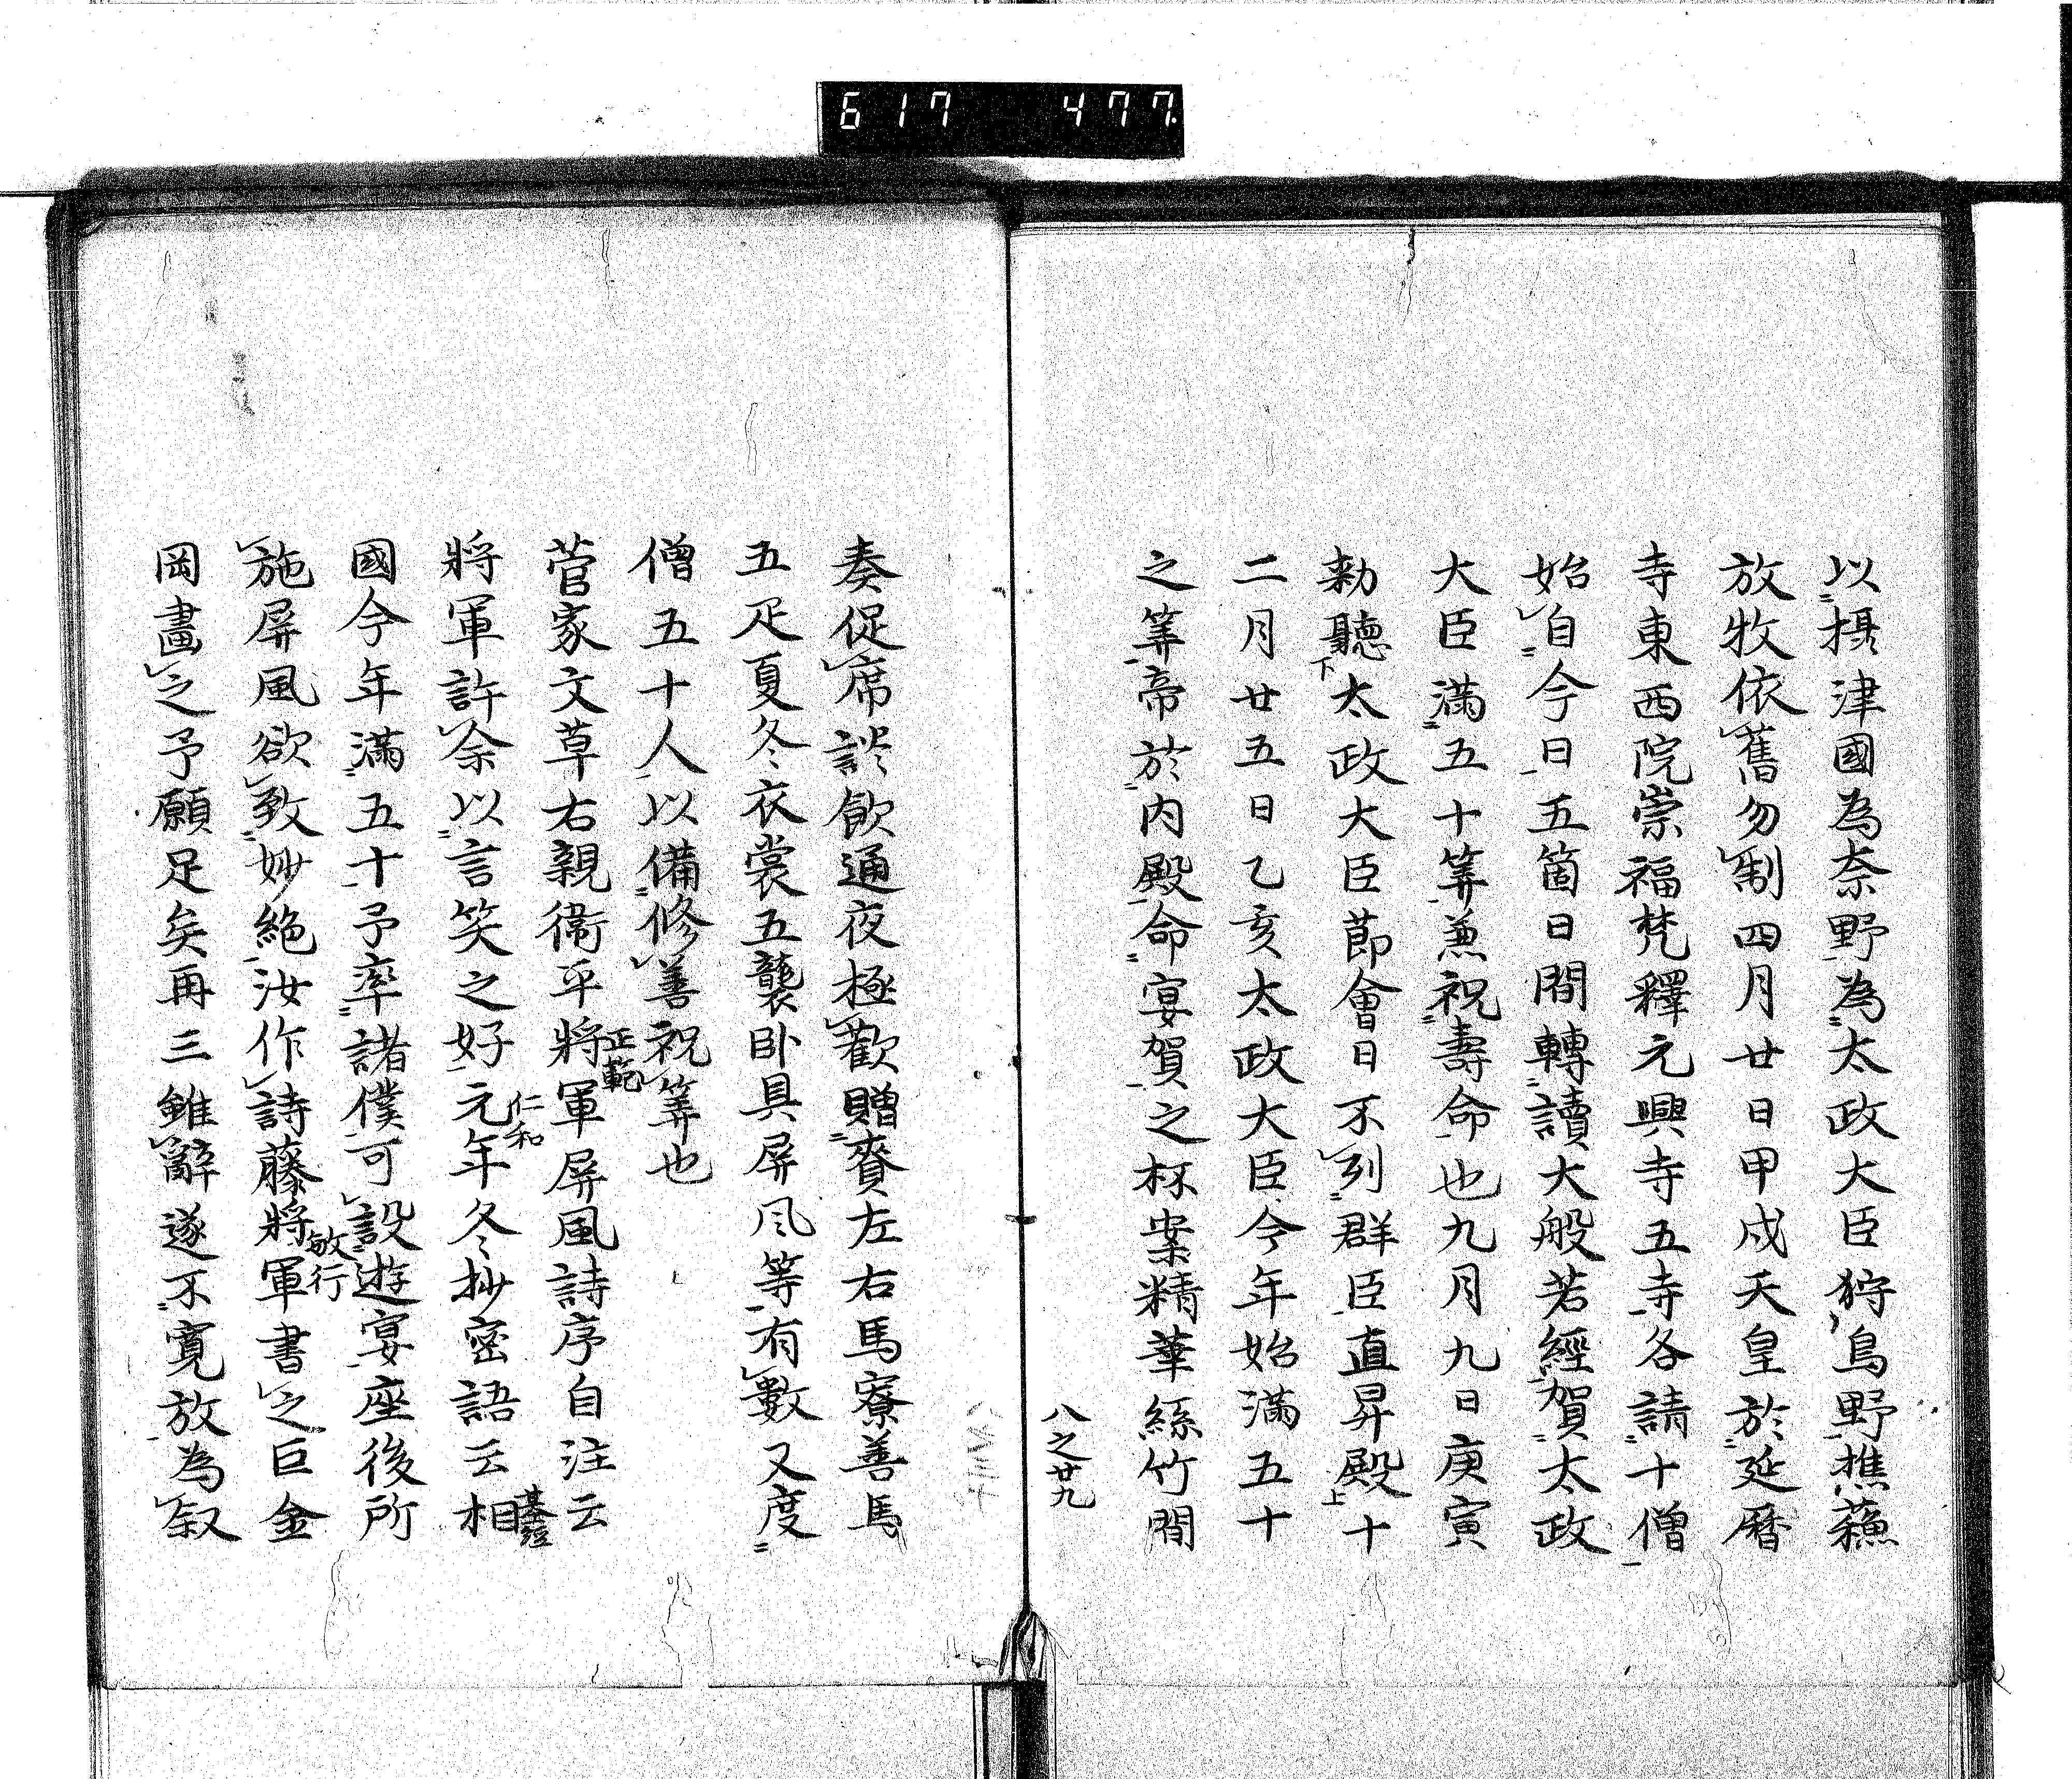 617 477
以摂津國為奈野為太政大臣狩鳥野樵蘓
放牧依舊勿制四月廿日甲戌天皇於延暦
寺東西院崇福梵釋元興寺五寺各請十僧
始自今日五箇日間轉讀大般若經賀太政
大臣滿五十筭兼祝壽命也九月九日庚寅
勅聽太政大臣莭會日不列群臣直昇殿十
下
上
二月廿五日乙亥太政大臣今年始滿五十
之筭帝於内殿命宴賀之杯案精華絲竹間
八之廿九
奏促席談飲通夜極歡贈賚左右馬寮善馬
五疋夏冬衣裳五襲卧具屏风等有數又度
僧五十人以備修善祝筭也
菅家文草右親衞平將軍屏風詩序自注云
正範
將軍許余以言笑之好元年冬抄密語云相
仁和
基經
國今年滿五十予率諸僕可設遊宴座後所
施屏風欲致妙絶汝作詩藤將軍書之巨金
敏行
岡畫之予願足矣再三雖辭遂不寛放為叙